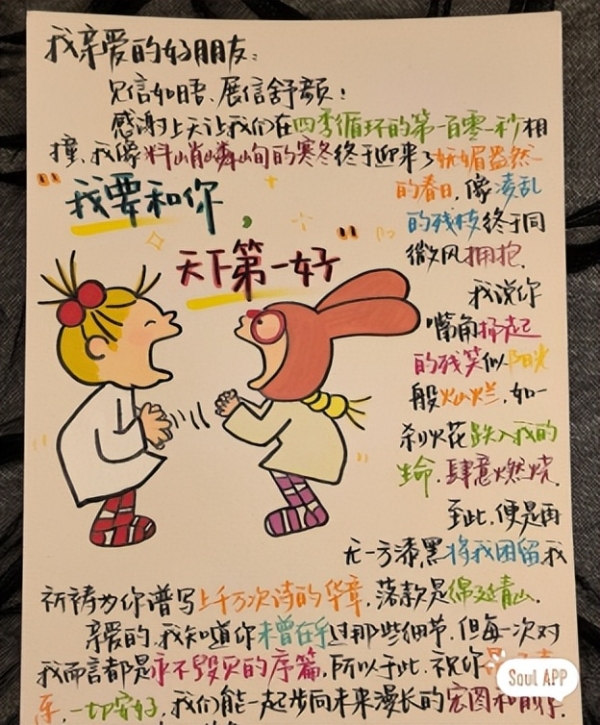 我亲爱的好朋友：
见信如晤、展信舒颜！
感谢上天让我们在四季循环的第一百零一秒相
撞，我像料峭嶙峋的寒冬终于迎来了妩媚盎然
的春日，像凌乱
的残枝终于同
微风拥抱。
"我要和你，
天下第一好"
我说你
嘴角扬起
的残笑似阳光
般灿烂，如一
刹火花跌入我的
生命，肆意燃烧。
至此，便是再
无一方漆黑将我困留，我
祈祷为你谱写上千万次诗的华章，落款是绵延青山。
亲爱的，我知道你未曾在乎过那些细节，但每一次对
我而言都是永不毁灭的序篇，所以于此，祝你
一切安好，我们能一起步向未来漫长的宏图和
Soul APP